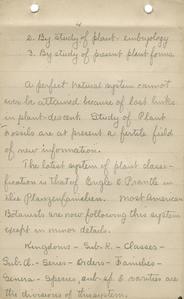 2. By study of plant embryology
3. By study of present plant forms
A perfect natural system cannot
ever be attained because of lost links
in plant descent. Study of Plant
Fossils are at present a fertile field
of new information.
The latest system of plant classi-
fication is that of Engle & Prantle in
the Planzenfamilien. Most American
Botanists are now following this system
except in minor details.
Kingdoms - Sub.K. - Classes -
Sub.Cl. - Series - Orders - Families -
Genera - Species, sub-sp. & varities are
the divisions of the system.